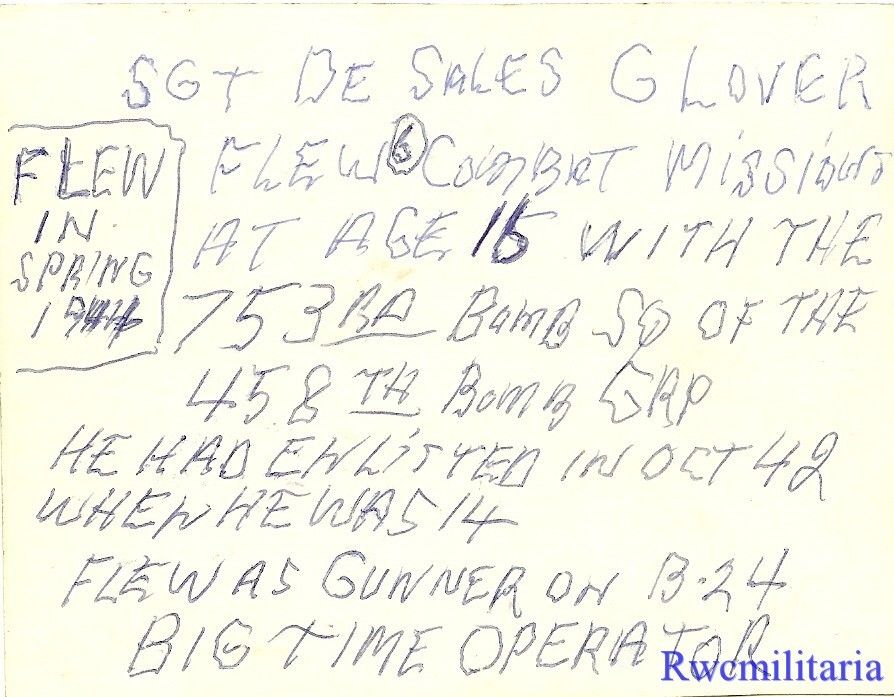 SGT DE SALES GLOVER
FLEW 6 COMBAT MISSIONS
AT AGE 16 WITH THE
753RD BOMB SQ OF THE
458TH BOMB GRP
FLEW
IN
SPRING
1944
HE HAD ENLISTED IN OCT 42
WHEN HE WAS 14
FLEW AS GUNNER ON B-24
BIG TIME OPERATOR
Rwcmilitaria